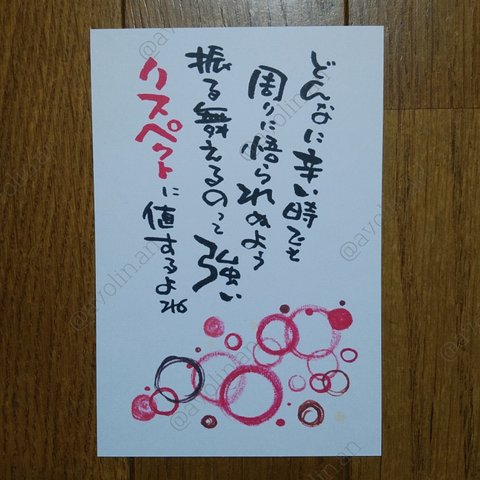 どんなに辛い時でも
周りに悟られぬよう
振る舞えるのって強い
リスペクトに値するよね
@avolin.an